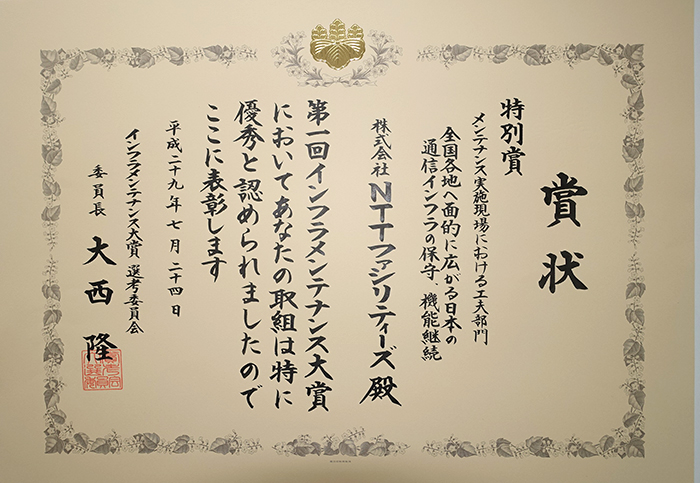 賞状
特別賞
メンテナンス実施現場における工夫部門
全国各地へ面的に広がる日本の
通信インフラの保守、機能継続
株式会社 NTTファシリティーズ 殿
第一回インフラメンテナンス大賞
においてあなたの取組は特に
優秀と認められましたので
ここに表彰します
平成二十九年七月二十四日
インフラメンテナンス大賞 選考委員会
委員長 大西隆